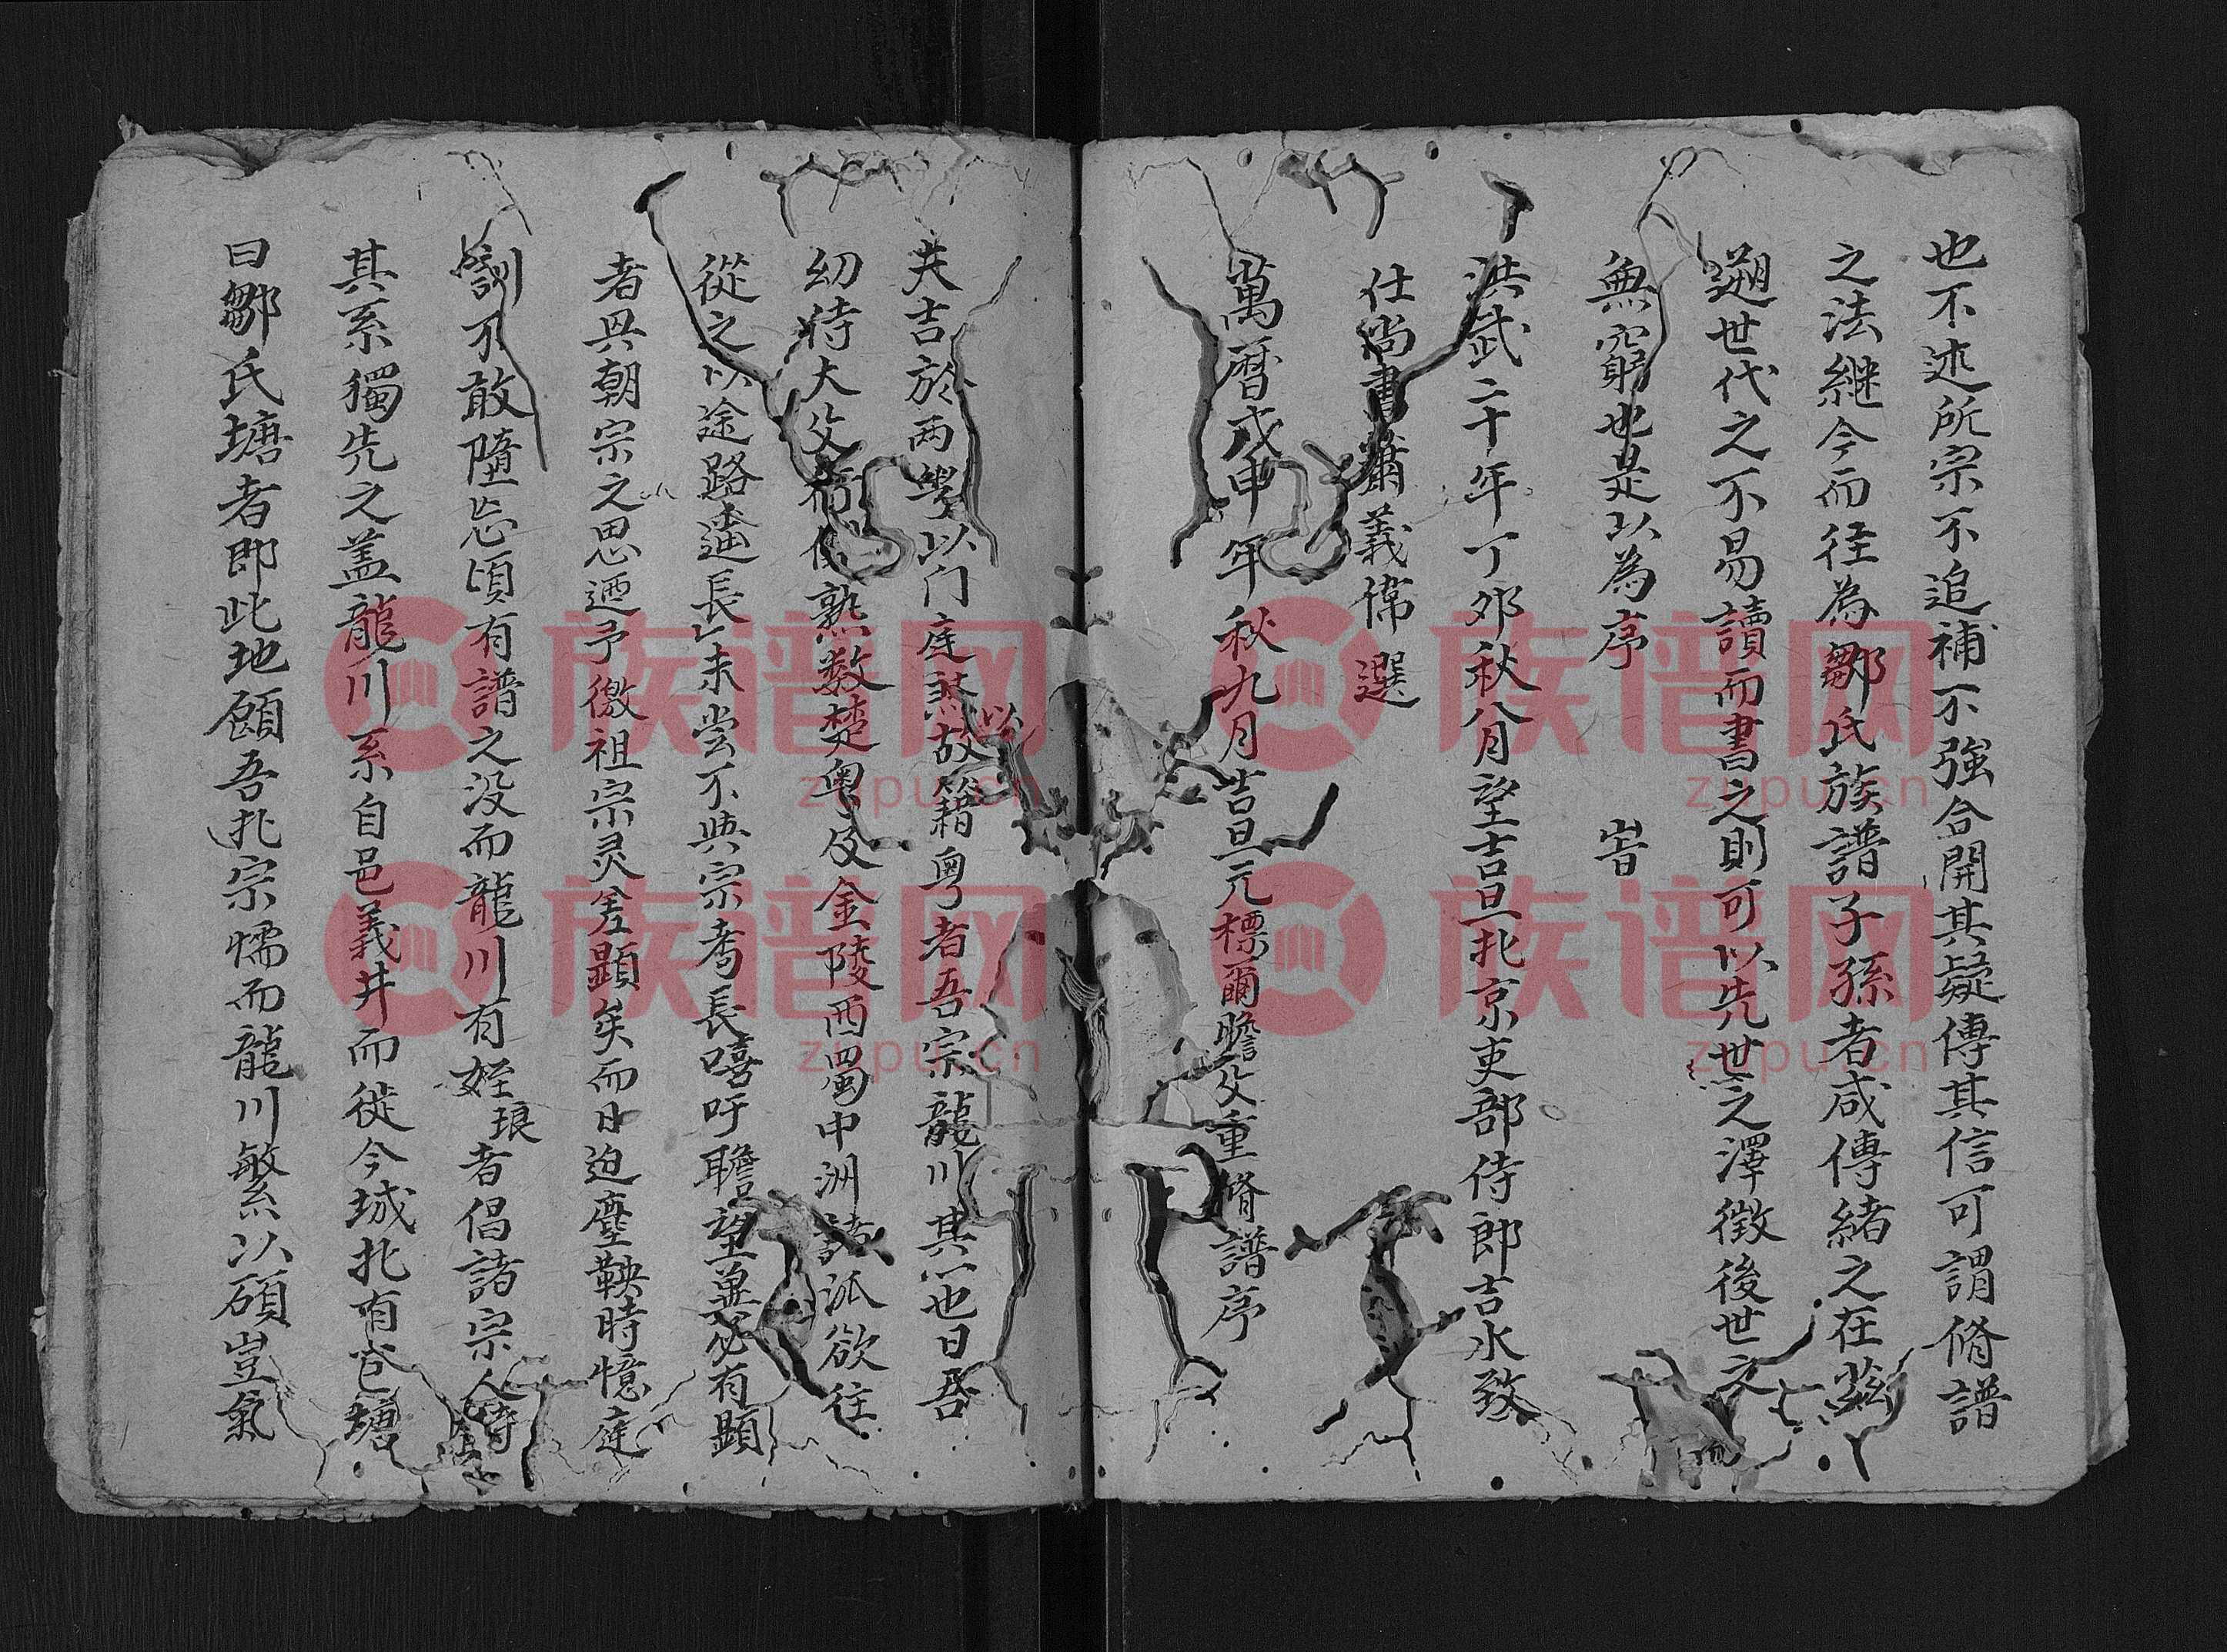 也不述所宗不追補不強合開其疑傳其信可謂脩譜
之法継今而徃為鄒氏族譜子孫者咸傳緒之在茲
遡世代之不易讀而書之則可以先世之澤徴後世之
無窮也是以為序 旹
洪武二十年丁夘秋八月望吉旦北京吏部侍郎吉水致
仕尚書蕭義 選
萬暦戊申年秋九月吉旦元標爾瞻父重脩譜序
吉於两 以门庭 以故籍粤者吾宗龍川其 也日吾
幼侍大父 熟数楚粤及金陵西蜀中洲諸派欲往
從之以途路遥長 未嘗不典宗耇長嘻吁瞻望 必有顕
者與朝宗之思迺予徼祖宗灵 顯矣而日迫塵鞅時憶庭
訓不敢隳忘頃有譜之没而龍川有姪琅者倡諸宗人
其系獨先之盖龍川系自邑義井而徙今城北有 塘
曰鄒氏塘者即此地顧吾北宗懦而龍川繁以碩豈氣
族谱网
zupu.cn
族谱网
zupu.cn
族谱网
zupu.cn
族谱网
zupu.cn